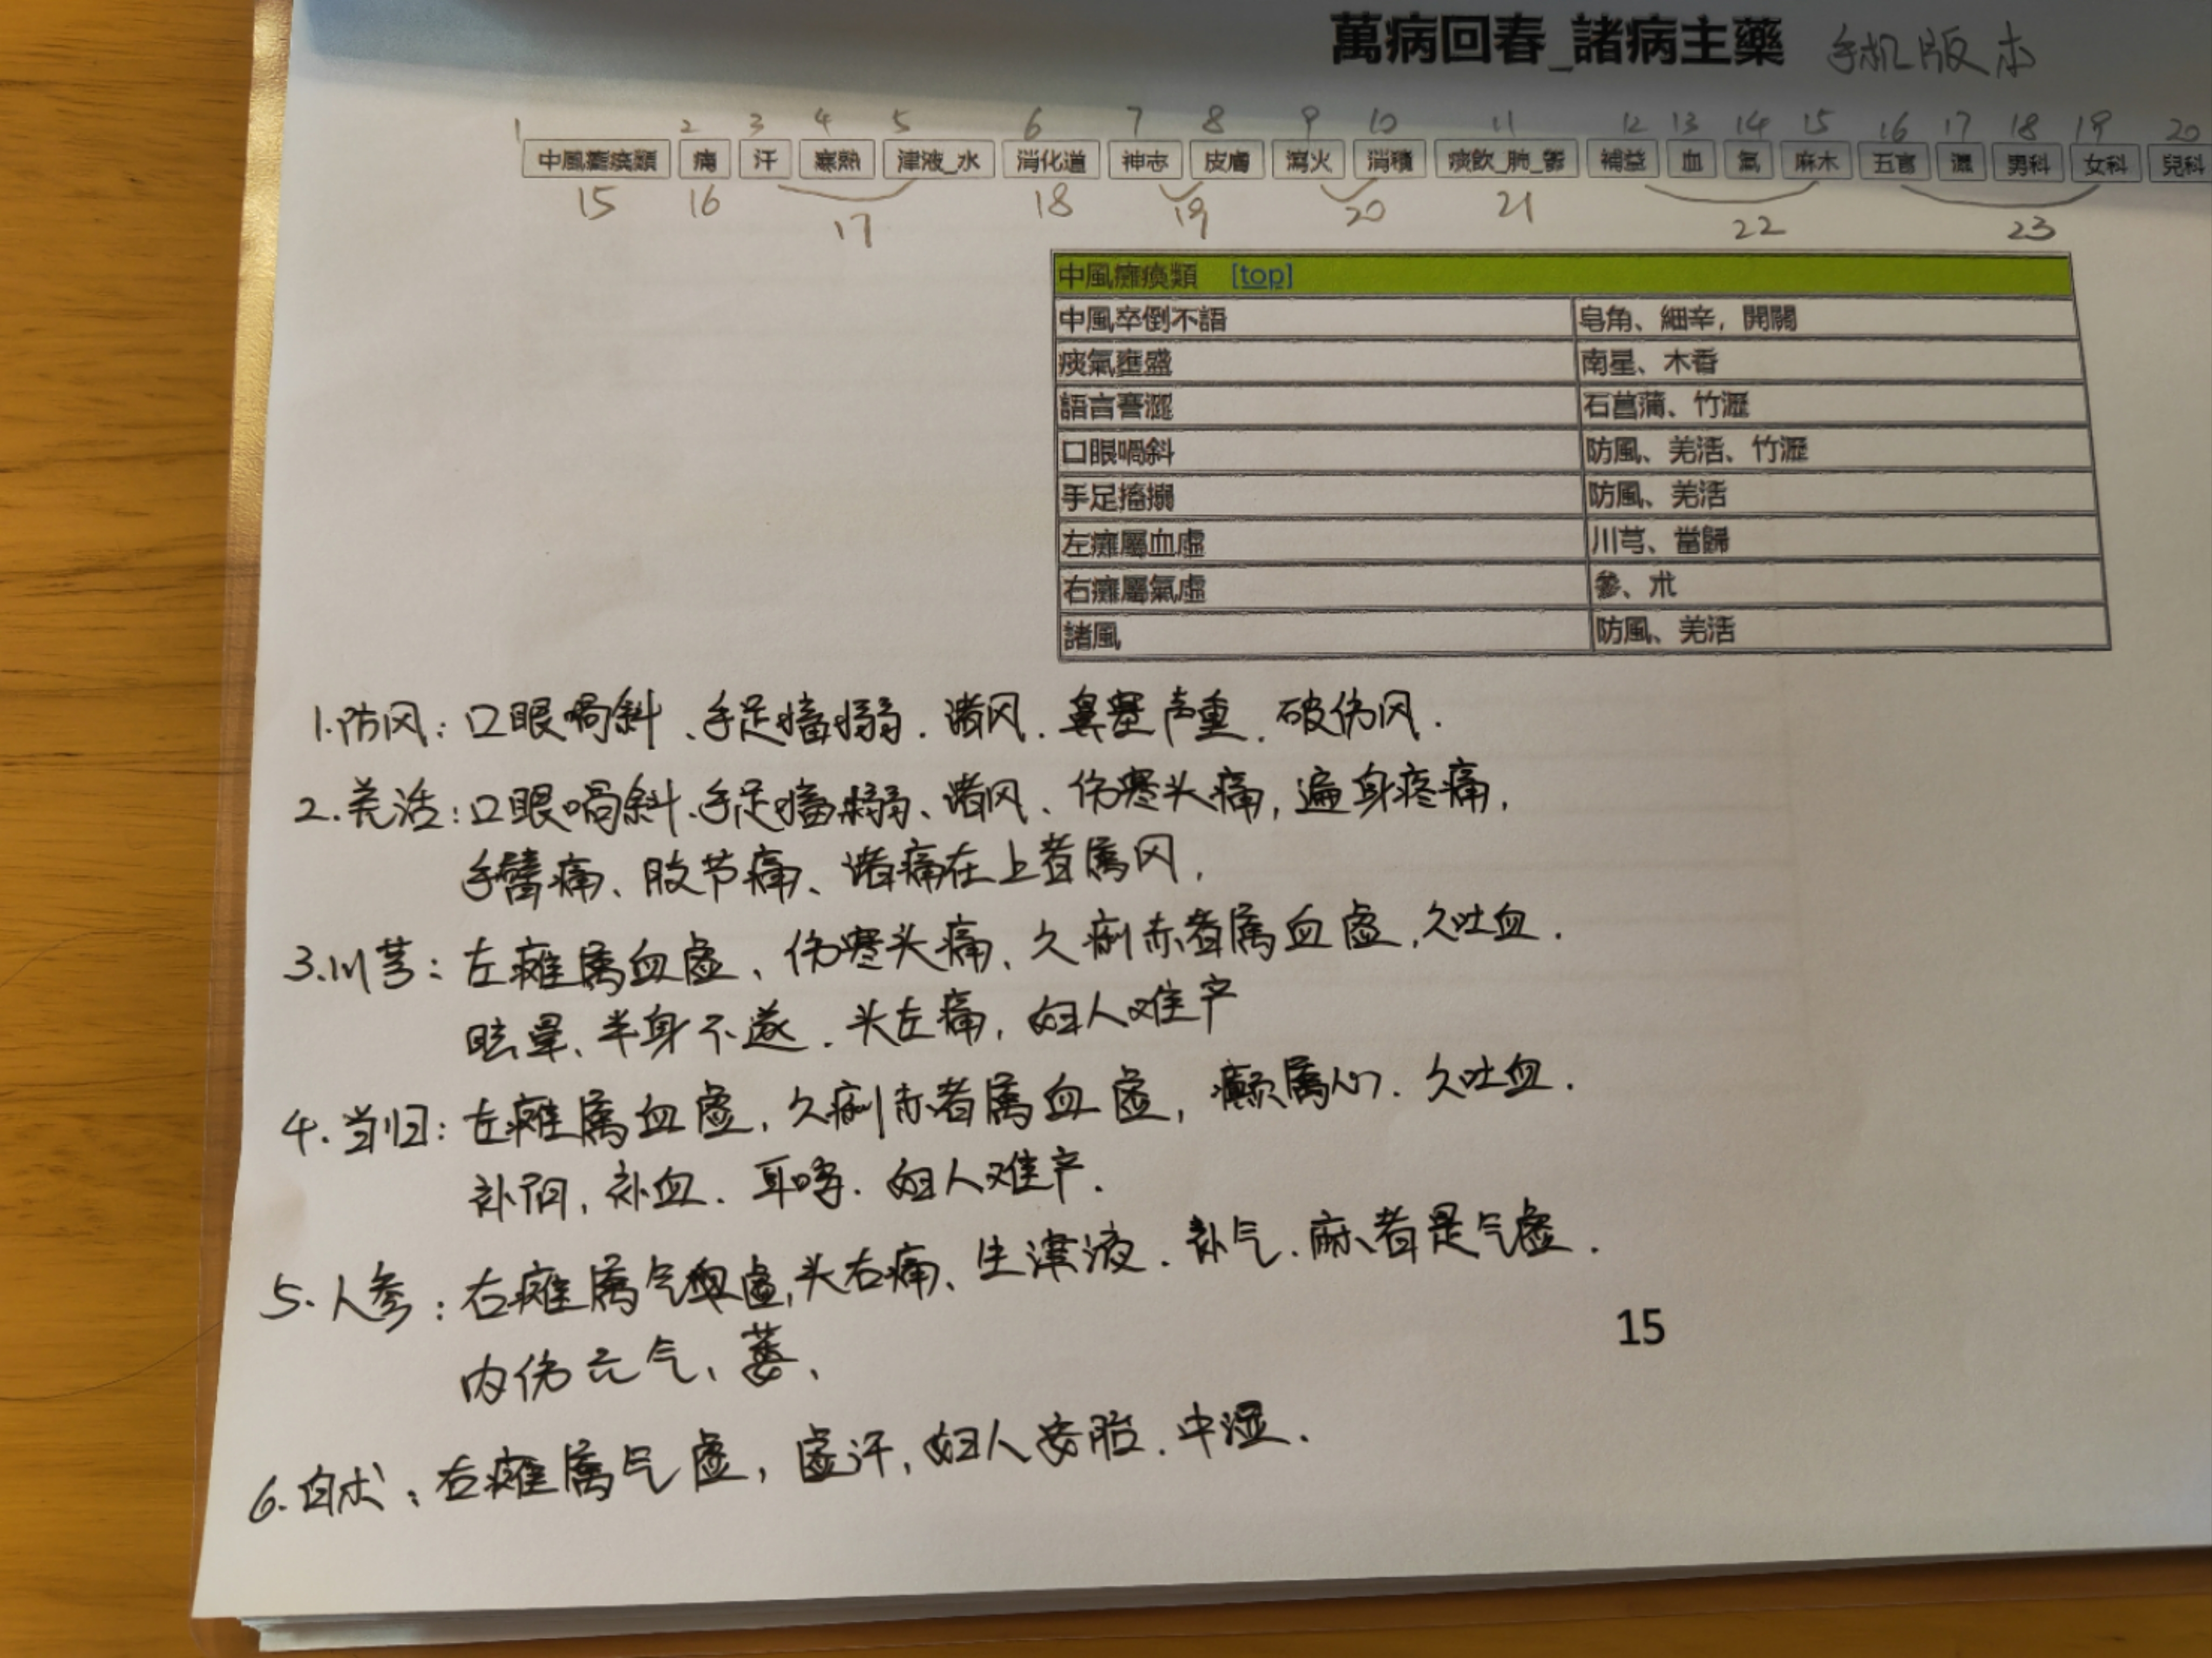 萬病回春_諸病主藥 手机版本
1 2 3 4 5 6 7 8 9 10 11 12 13 14 15 16 17 18 19 20
中風癱瘓類 痛 汗 寒熱 津液_水 消化道 神志 皮膚 瀉火 消積 痰飲_肺_鬱 補益 血 氣 麻木 五官 濕 男科 女科 兒科
15 16 17 18 19 20 21 22 23
中風癱瘓類 [top]
中風卒倒不語 皂角、細辛，開關
痰氣壅盛 南星、木香
語言蹇澀 石菖蒲、竹瀝
口眼喎斜 防風、羌活、竹瀝
手足搐搦 防風、羌活
左癱屬血虛 川芎、當歸
右癱屬氣虛 參、朮
諸風 防風、羌活
1.防风：口眼喎斜、手足搐搦．诸风．鼻塞声重．破伤风．
2.羌活：口眼喎斜．手足搐搦、诸风、伤寒头痛，遍身疼痛，
手臂痛、肢节痛、诸痛在上者属风，
3.川芎：左瘫属血虚、伤寒头痛、久痢赤者属血虚，久吐血．
眩晕、半身不遂．头左痛，妇人难产
4.当归：左瘫属血虚，久痢赤者属血虚，癫属心．久吐血．
补阴，补血．耳哮．妇人难产．
5.人参：右瘫属气虚，头右痛、生津液．补气．麻者是气虚．
内伤元气、萎、
6.白术：右瘫属气虚，虚汗，妇人安胎．中湿．
15